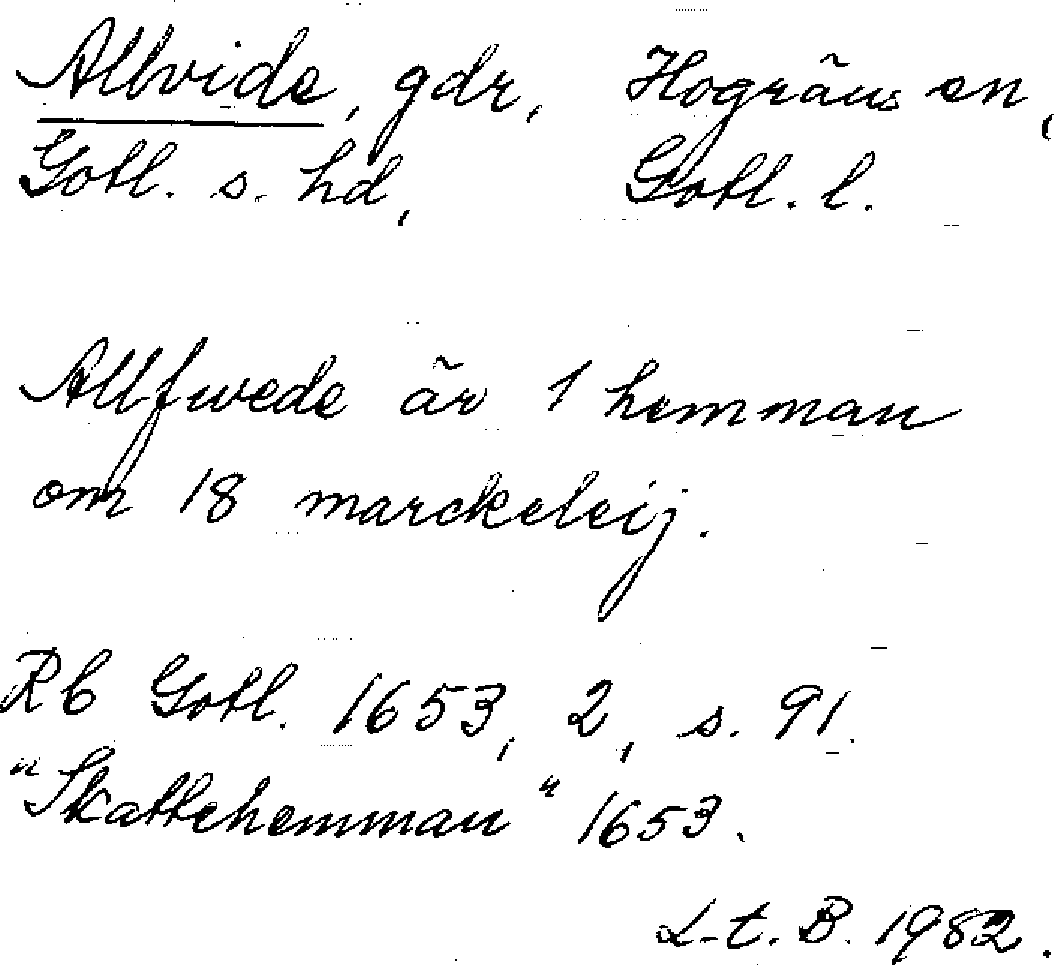 Allvide, gdr, Hogräns sn,
Gotl. s. hd, Gotl. l.
Allfwede är 1 hemman
om 18 marckeleij.
Rb Gotl. 1653, 2, s. 91.
"Skattehemman" 1653.
L-t. B. 1982.